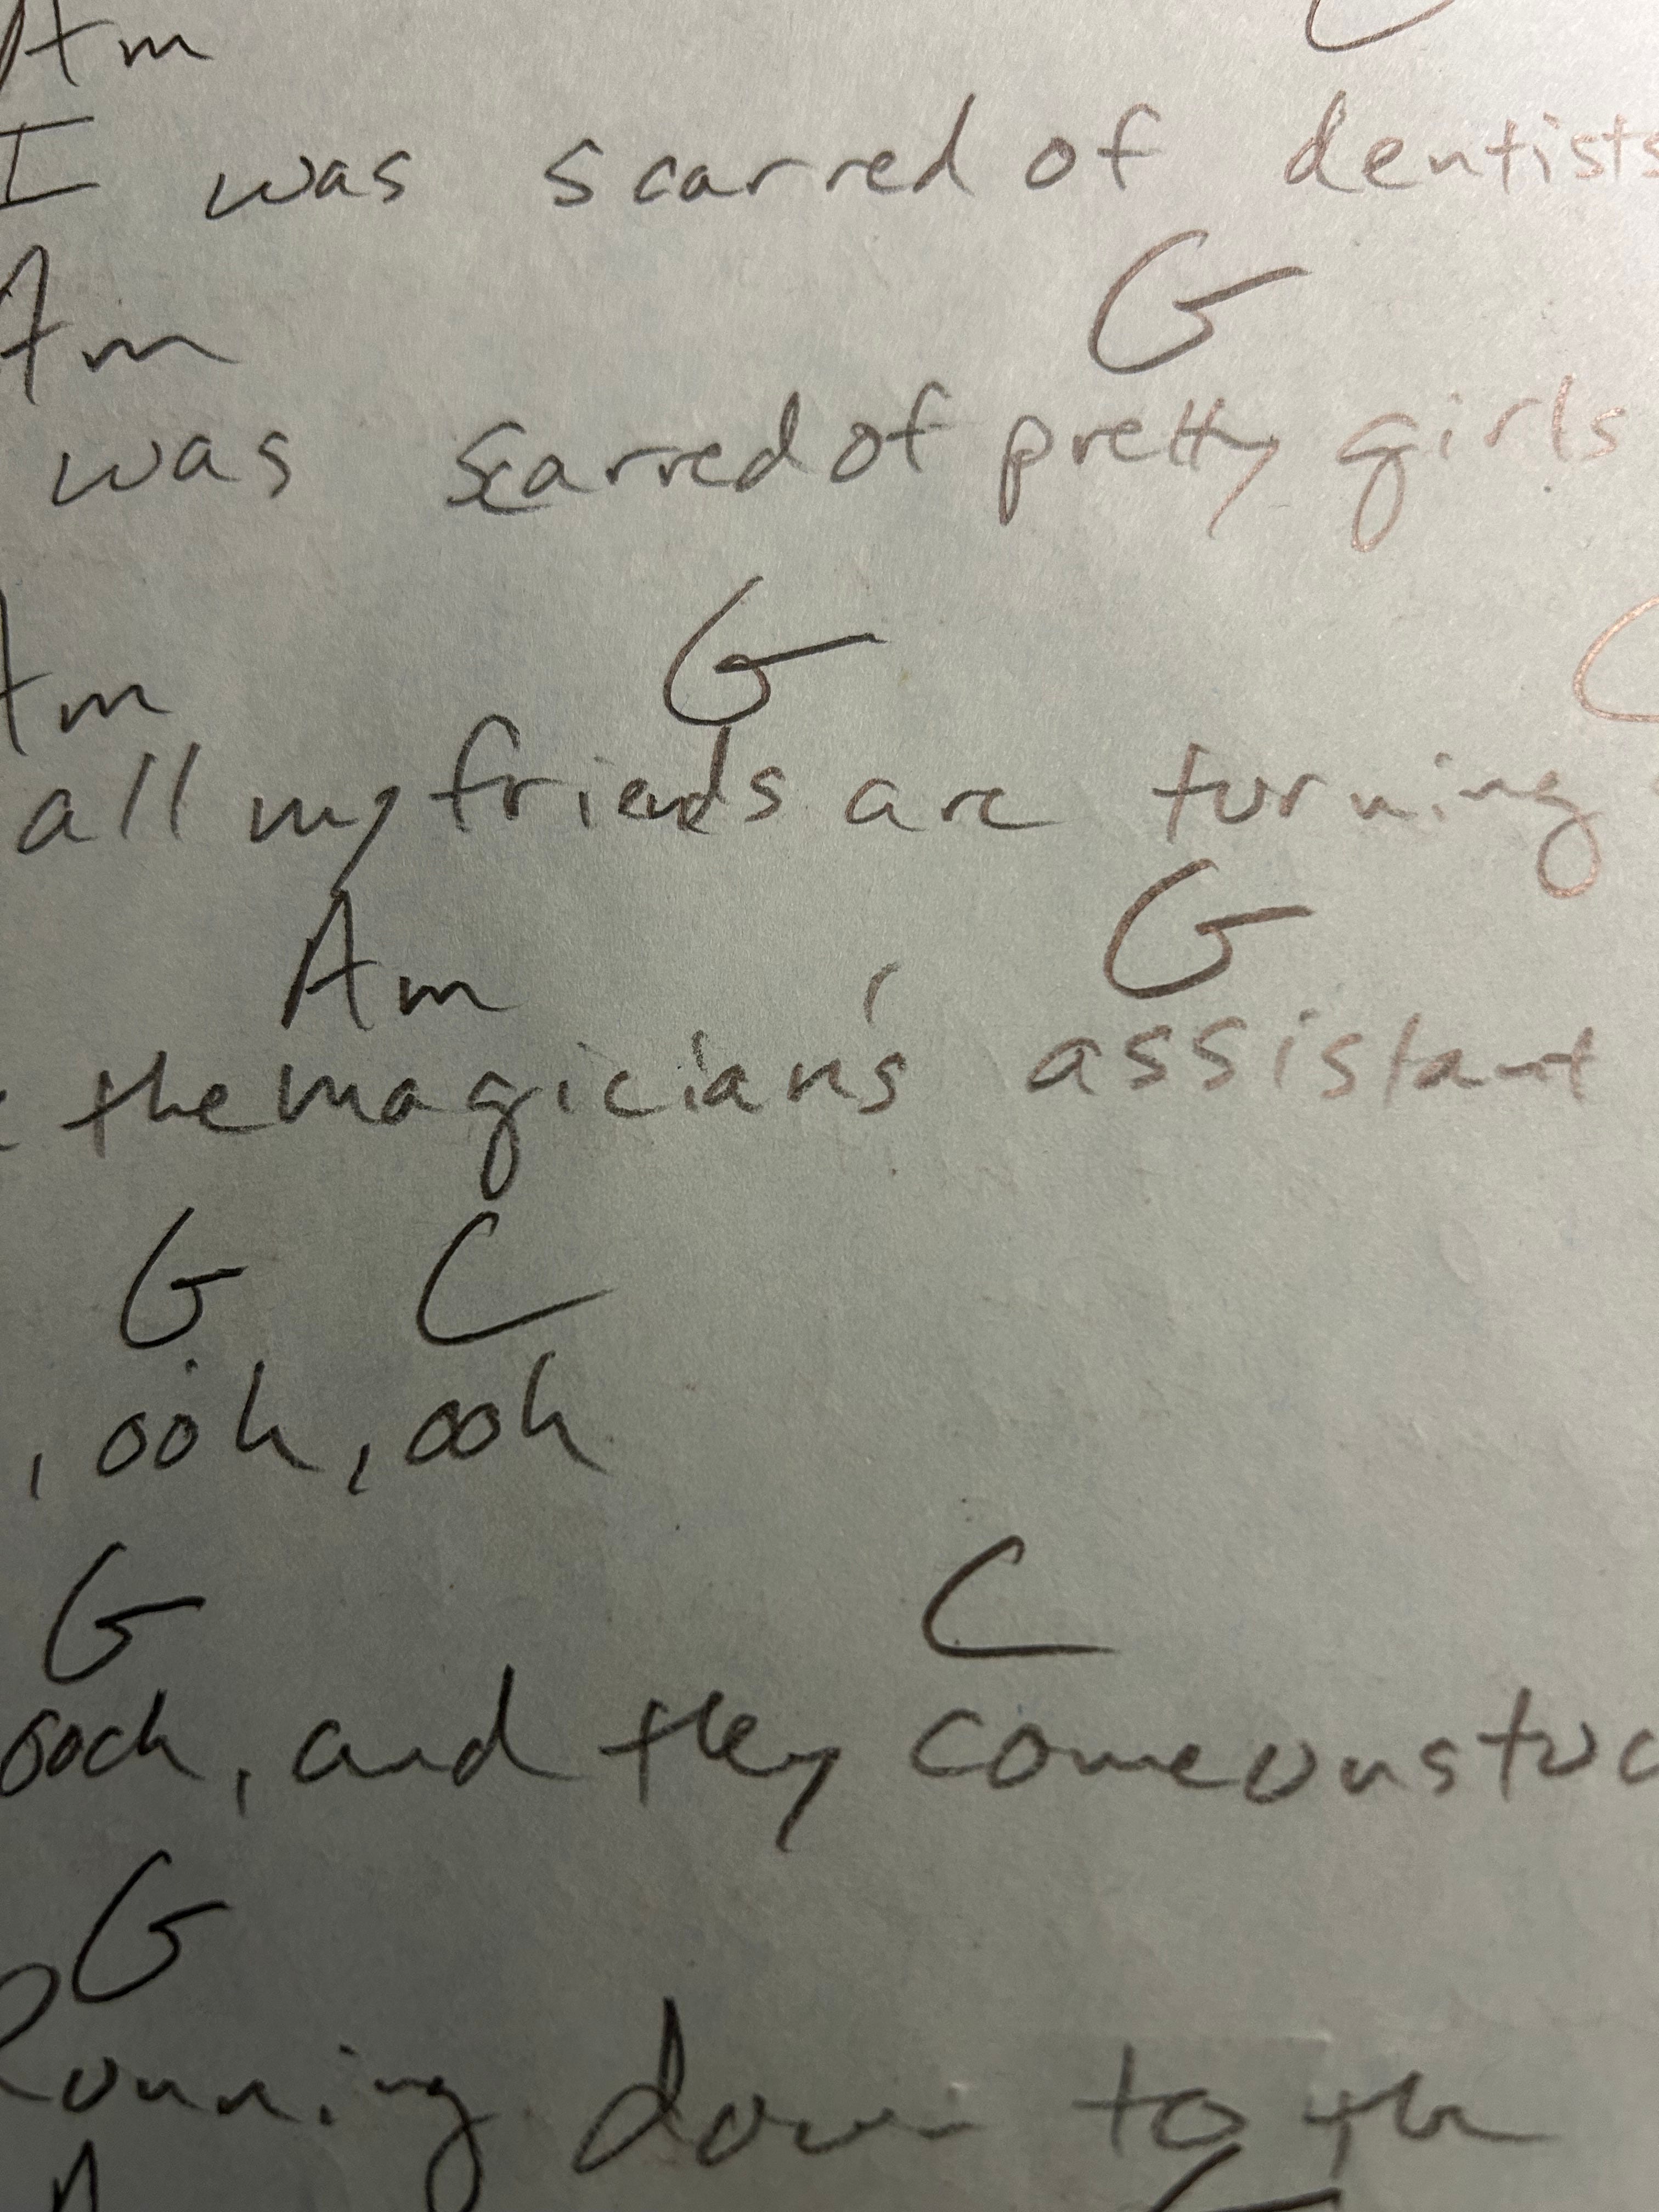 Am C
I was scarred of dentists
Am G
was scarred of pretty girls
Am G C
all my friends are turning
Am G
the magician's assistant
G C
, ooh, ooh
G C
oooh, and they come unstuc
G
Running down to the
A G